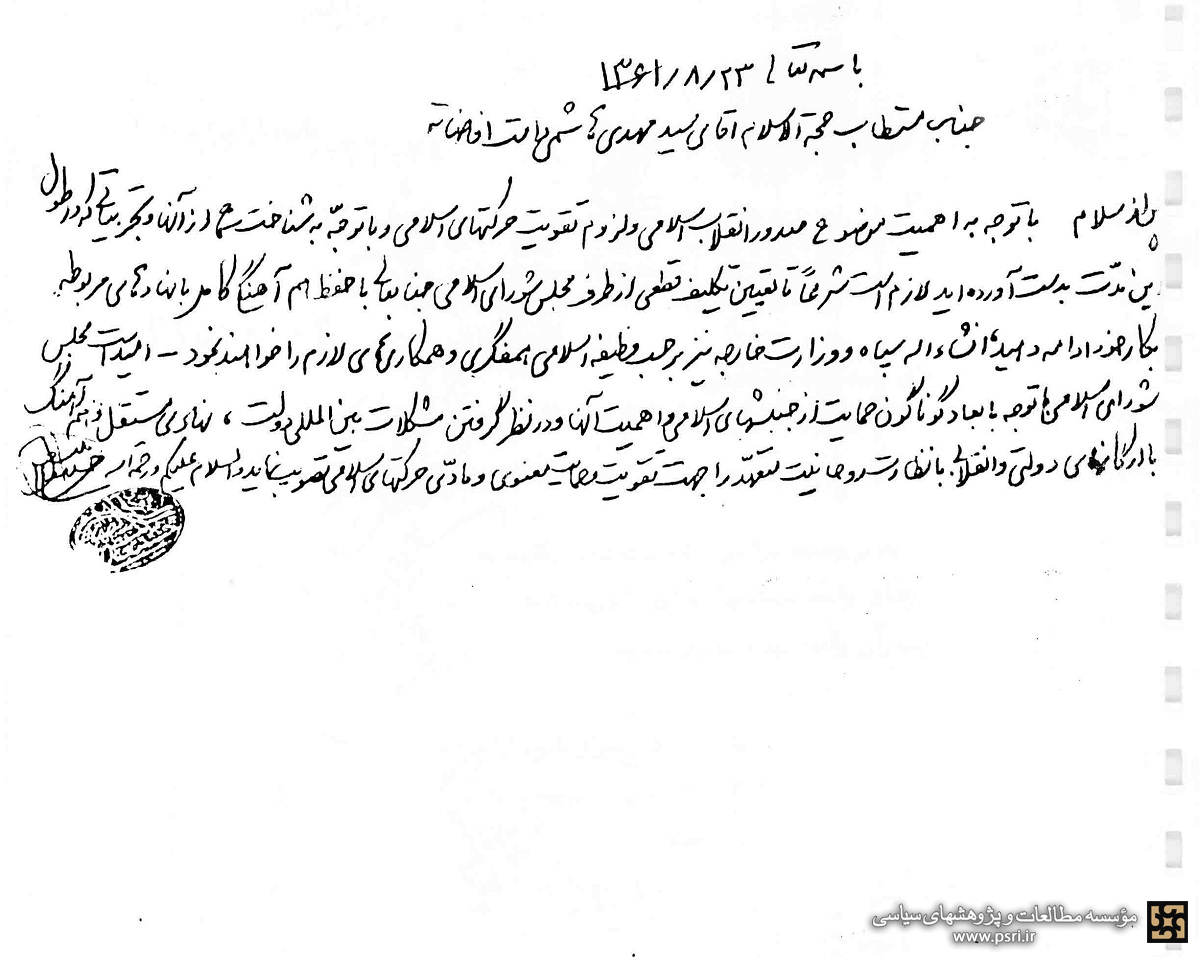 باسمه تعالی ۱۳۶۱/۸/۲۳
جناب مستطاب حجة الاسلام آقای سید مهدی هاشمی دامت افاضاته
پس از سلام با توجه به اهمیت موضوع صدور انقلاب اسلامی و لزوم تقویت حرکتهای اسلامی و با توجّه به شناخت شما از آنها و تجربیاتی که در طول
این مدّت بدست آورده‌اید لازم است شرعاً تا تعیین تکلیف قطعی از طرف مجلس شورای اسلامی جنابعالی با حفظ هم آهنگی کامل با نهادهای مربوطه
بکار خود ادامه دهید، انشاءاله سپاه و وزارت خارجه نیز بر حسب وظیفه اسلامی همفکری و همکاری‌های لازم را خواهند نمود - امید است مجلس
شورای اسلامی با توجه بابعاد گوناگون حمایت از جنبشهای اسلامی و اهمیت آنها و در نظر گرفتن مشکلات بین المللی دولت ، نهادی مستقل و هم آهنگ
با ارگانهای دولتی و انقلابی با نظارت روحانیت متعهّد را جهت تقویت و حمایت معنوی و مادّی حرکتهای اسلامی تصویب نماید والسلام علیکم و رحمة اله
مؤسسه مطالعات و پژوهشهای سیاسی
www.psri.ir